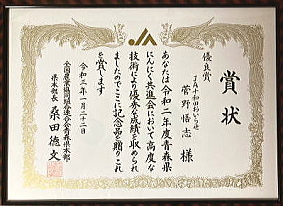 賞状
優良賞
JA十和田おいらせ
菅野悟志 様
あなたは令和二年度青森県
にんにく共進会において高度な
技術により優秀な成績を収められ
ましたのでここに記念品を贈りこれ
を賞します
令和三年一月二十二日
全国農業協同組合連合会青森県本部
県本部長 桑田徳文